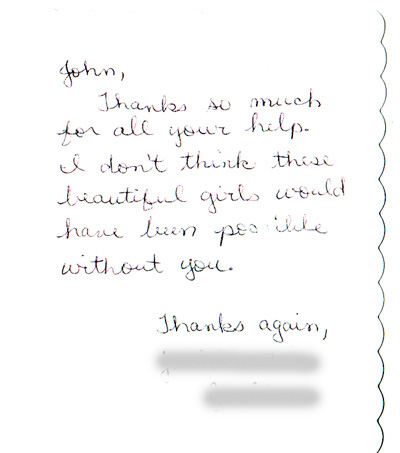 John,
Thanks so much
for all your help.
I don't think these
beautiful girls would
have been possible
without you.
Thanks again,